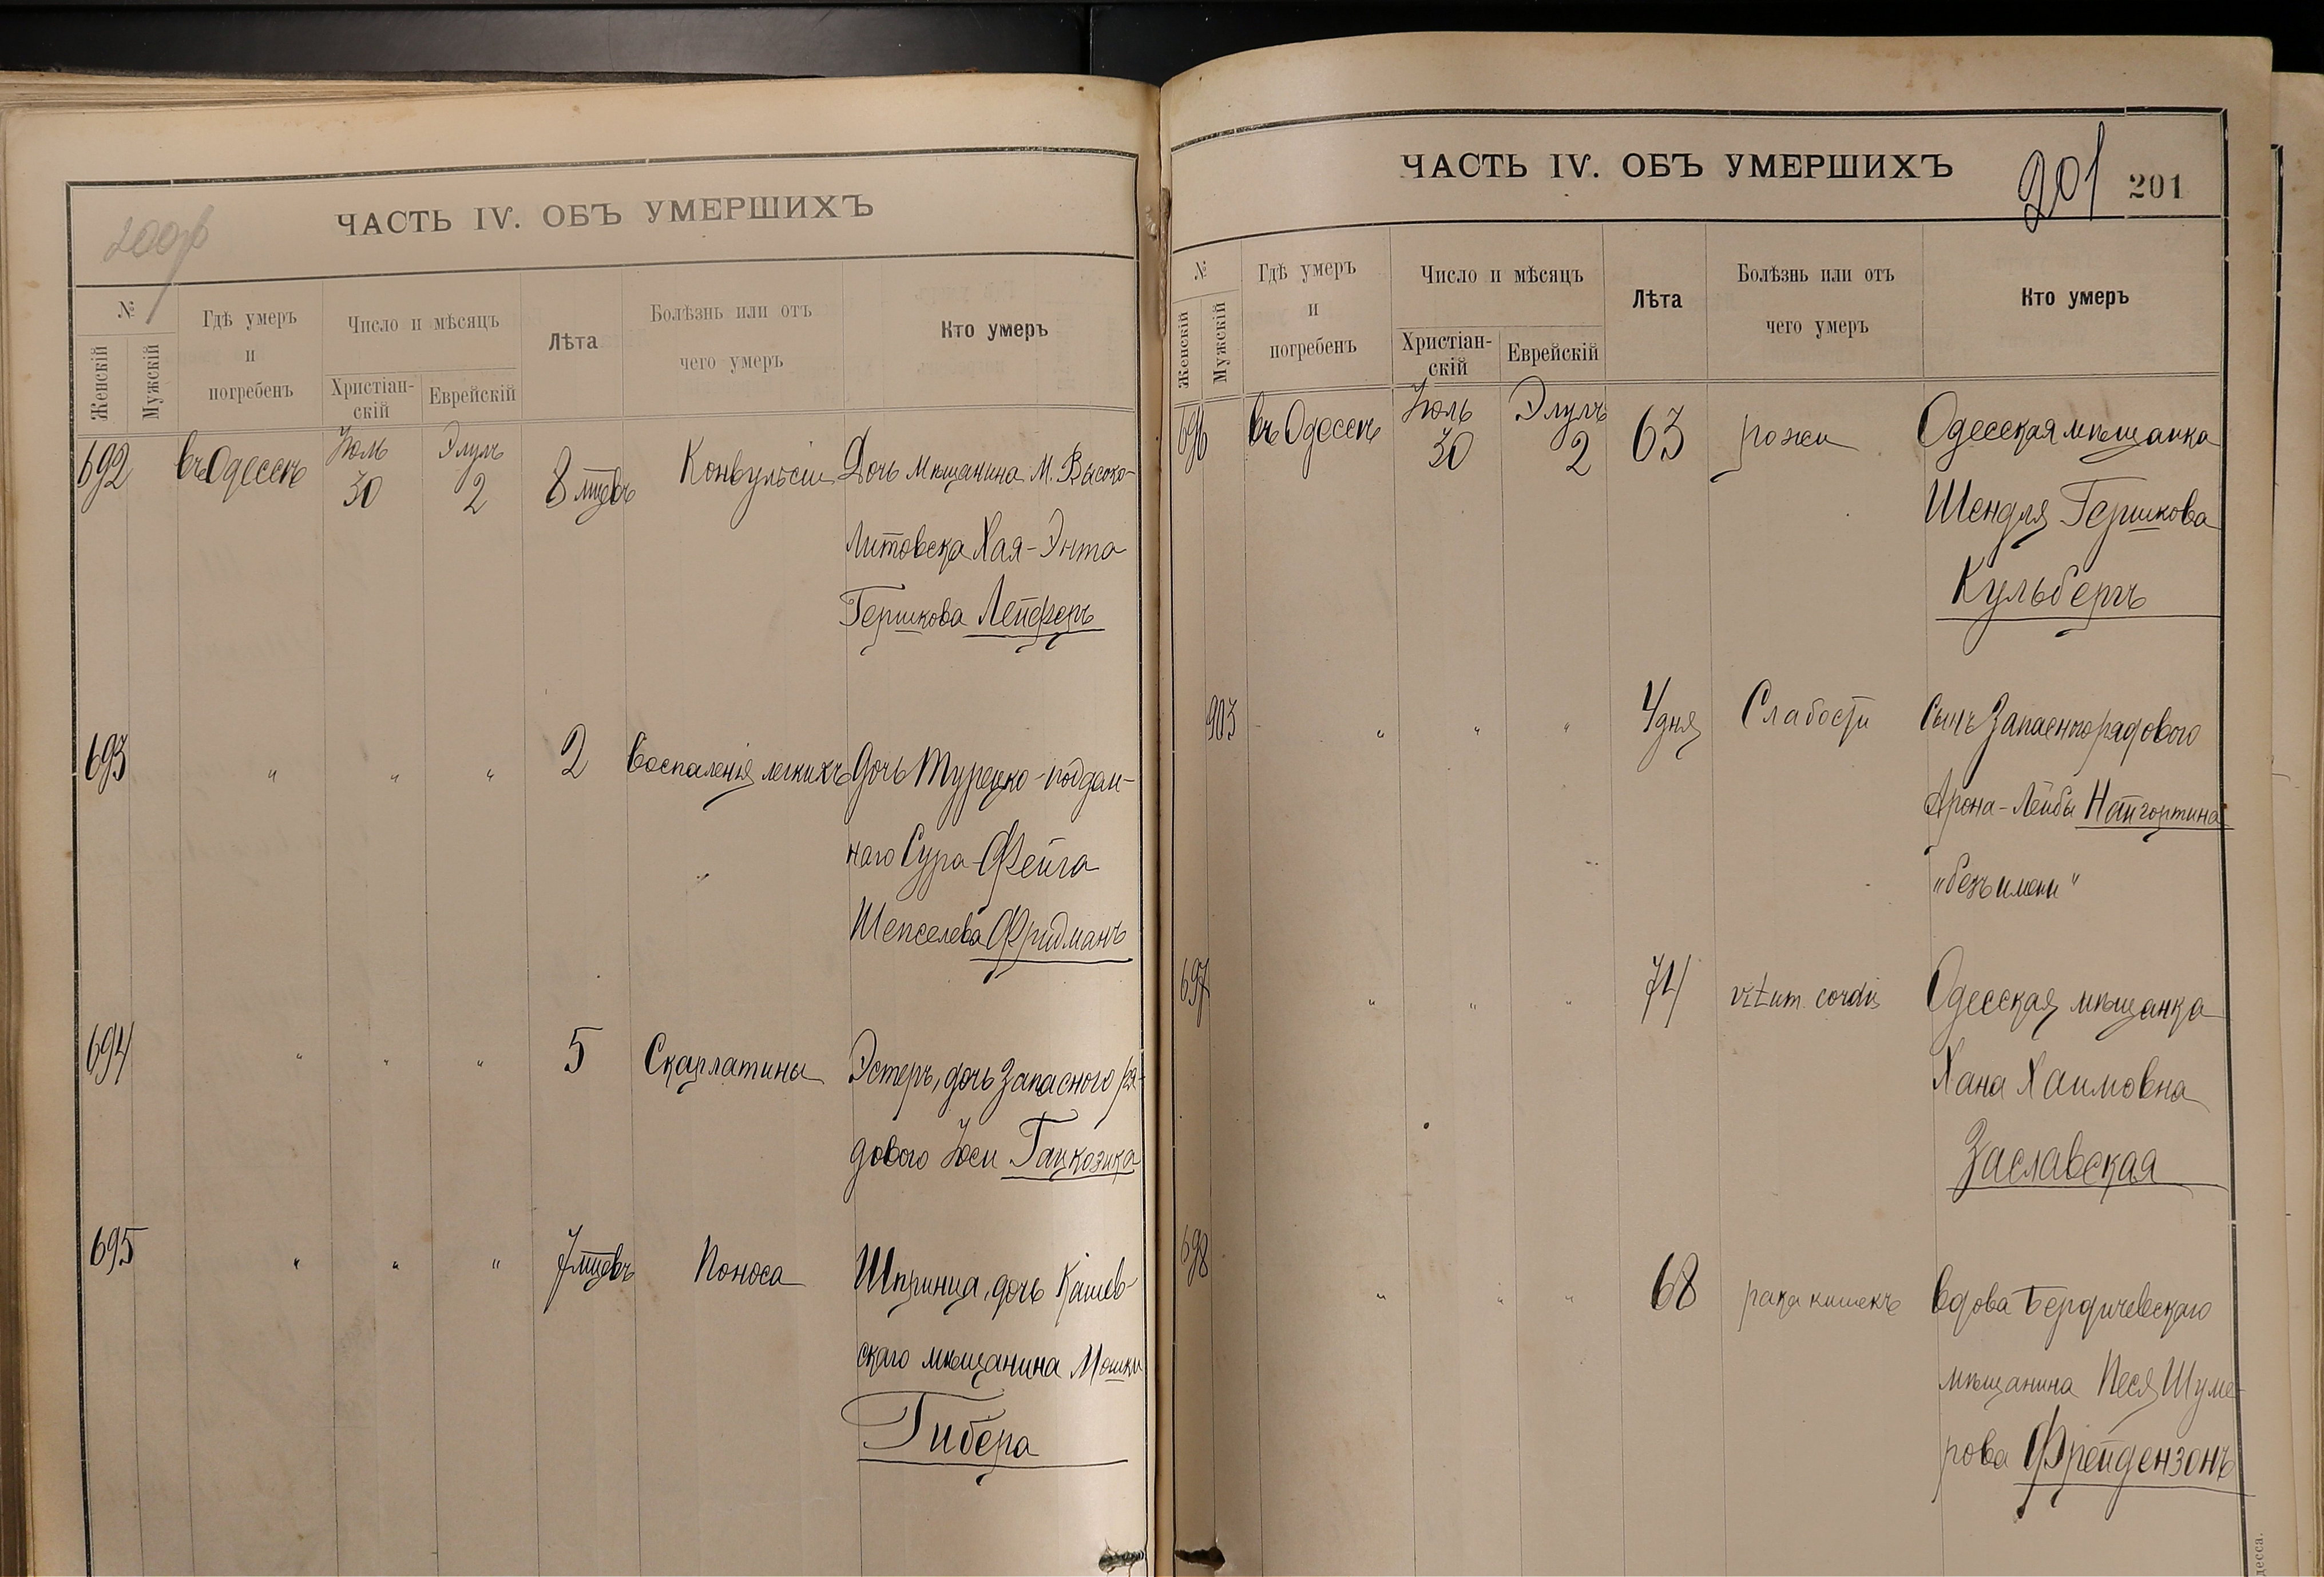 200об
ЧАСТЬ IV. ОБЪ УМЕРШИХЪ
№
Женскій
Мужскій
Гдѣ умеръ
и
погребенъ
Число и мѣсяцъ
Христіан-
скій
Еврейскій
Лѣта
Болѣзнь или отъ
чего умеръ
Кто умеръ
692 въ Одессѣ Іюль 30 Элулъ 2 8 мцевъ Конвульсіи Дочь мѣщанина М. Высоко-
Литовска Хая-Энта
Гершкова Лейферъ
693 " " " 2 Воспаленія легкихъ Дочь Турецко-поддан-
наго Сура-Фейга
Шепселева Фридманъ
694 " " " 5 Скарлатины Эстеръ, дочь Запасного ря-
дового Іоси Гацкозика
695 " " " 7 мцевъ Поноса Шпринца, дочь Кашев-
скаго мѣщанина Мошки
Гибера
ЧАСТЬ IV. ОБЪ УМЕРШИХЪ
201
201
№
Женскій
Мужскій
Гдѣ умеръ
и
погребенъ
Число и мѣсяцъ
Христіан-
скій
Еврейскій
Лѣта
Болѣзнь или отъ
чего умеръ
Кто умеръ
696 въ Одессѣ Іюль 30 Элулъ 2 63 рожи Одесская мѣщанка
Шендля Гершкова
Кульбергъ
903 " " " 4 дня Слабости Сынъ Запаснаго рядового
Арона-Лейбы Найгортина
"безъ имени"
697 " " " 74 vitum cordis Одесская мѣщанка
Хана Хаимовна
Заславская
698 " " " 68 рака кишекъ Вдова Бердичевскаго
мѣщанина Песя Шуме-
рова Фрейдензонъ
десса.